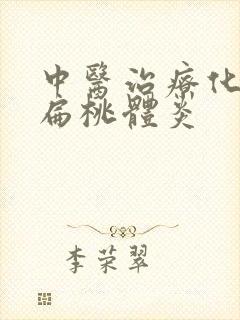 中醫治療化
扁桃體炎
李荣翠